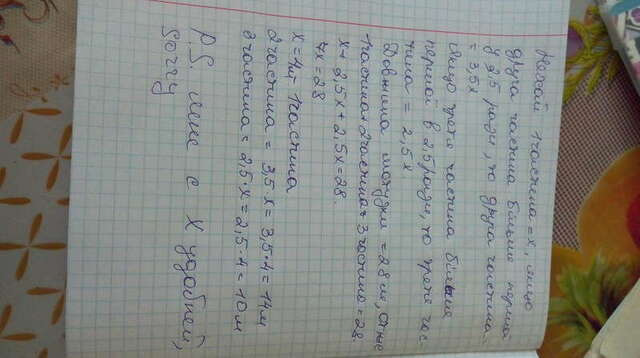 Нехай 1частина = x, якщо
друга частина більше першої
у 3,5 рази, то друга частина =
= 3,5x
Якщо третя частина більше
першої в 2,5 рази, то третя час-
тина = 2,5x
Довжина мотузки = 28 м, отже
1частина + 2частина + 3 частина = 28.
x + 3,5x + 2,5x = 28.
7x = 28
x = 4м - 1частина
2частина = 3,5x = 3,5·4 = 14м
3частина = 2,5·x = 2,5·4 = 10м
P.S. мене с X удобней,
sorry